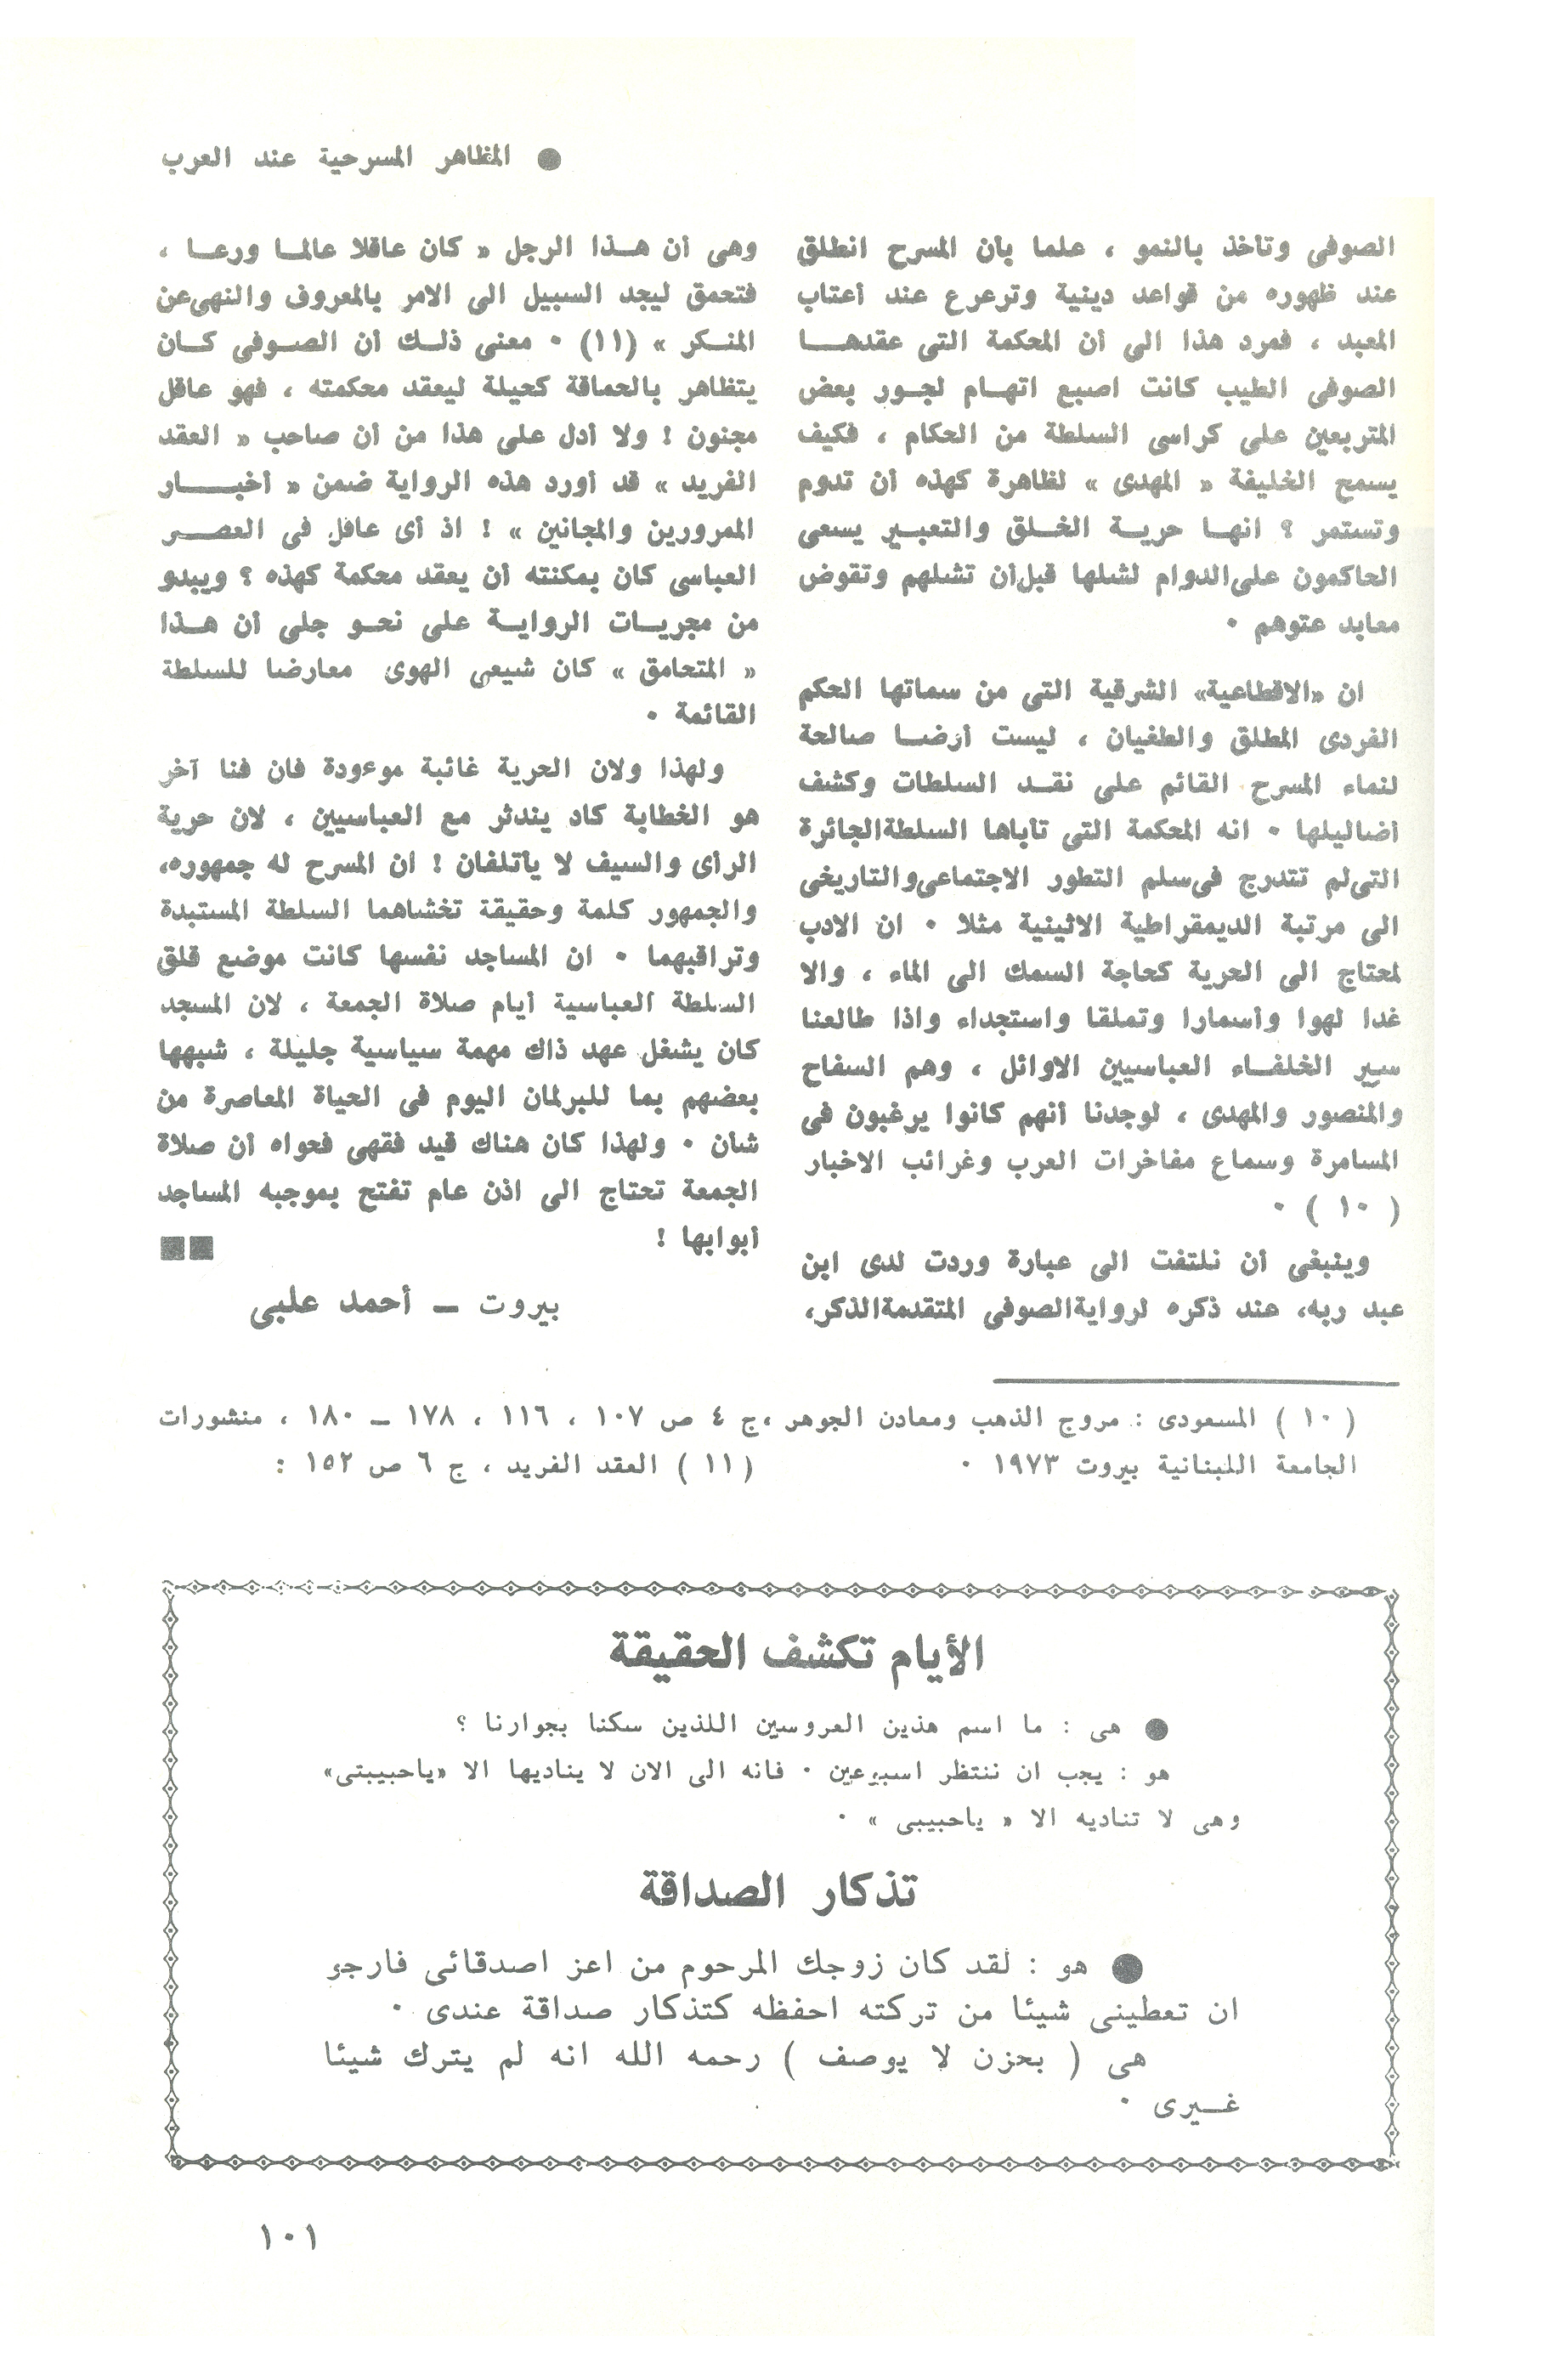 ● المظاهر المسرحية عند العرب
الصوفى وتأخذ بالنمو ، علما بأن المسرح انطلق
عند ظهوره من قواعد دينية وترعرع عند أعتاب
المعبد ، فمرد هذا الى أن المحكمة التى عقدها
الصوفى الطيب كانت اصبع اتهام لجور بعض
المتربعين على كراسى السلطة من الحكام ، فكيف
يسمح الخليفة « المهدى » لظاهرة كهذه أن تدوم
وتستمر ؟ انها حرية الخلق والتعبير يسعى
الحاكمون على الدوام لشلها قبل أن تشلهم وتقوض
معابد عتوهم ٠
ان «الاقطاعية» الشرقية التى من سماتها الحكم
الفردى المطلق والطغيان ، ليست أرضا صالحة
لنماء المسرح القائم على نقد السلطات وكشف
أضاليلها ٠ انه المحكمة التى تأباها السلطة الجائرة
التى لم تتدرج فى سلم التطور الاجتماعى والتاريخى
الى مرتبة الديمقراطية الاثينية مثلا ٠ ان الادب
لمحتاج الى الحرية كحاجة السمك الى الماء ، والا
غدا لهوا وأسمارا وتملقا واستجداء واذا طالعنا
سير الخلفاء العباسيين الاوائل ، وهم السفاح
والمنصور والمهدى ، لوجدنا أنهم كانوا يرغبون فى
المسامرة وسماع مفاخرات العرب وغرائب الاخبار
( ١٠ ) ٠
وينبغى أن نلتفت الى عبارة وردت لدى ابن
عبد ربه، عند ذكره لرواية الصوفى المتقدمة الذكر،
وهى أن هذا الرجل « كان عاقلا عالما ورعا ،
فتحمق ليجد السبيل الى الامر بالمعروف والنهى عن
المنكر » (١١) ٠ معنى ذلك أن الصوفى كان
يتظاهر بالحماقة كحيلة ليعقد محكمته ، فهو عاقل
مجنون ! ولا أدل على هذا من أن صاحب « العقد
الفريد » قد أورد هذه الرواية ضمن « أخبار
الممرورين والمجانين » ! اذ أى عاقل فى العصر
العباسى كان بمكنته أن يعقد محكمة كهذه ؟ ويبدو
من مجريات الرواية على نحو جلى أن هذا
« المتحامق » كان شيعى الهوى معارضا للسلطة
القائمة ٠
ولهذا ولان الحرية غائبة موءودة فان فنا آخر
هو الخطابة كاد يندثر مع العباسيين ، لان حرية
الرأى والسيف لا يأتلفان ! ان المسرح له جمهوره،
والجمهور كلمة وحقيقة تخشاهما السلطة المستبدة
وتراقبهما ٠ ان المساجد نفسها كانت موضع قلق
السلطة العباسية أيام صلاة الجمعة ، لان المسجد
كان يشغل عهد ذاك مهمة سياسية جليلة ، شبهها
بعضهم بما للبرلمان اليوم فى الحياة المعاصرة من
شأن ٠ ولهذا كان هناك قيد فقهى فحواه أن صلاة
الجمعة تحتاج الى اذن عام تفتح بموجبه المساجد
أبوابها !
بيروت ــ أحمد علبى
( ١٠ ) المسعودى : مروج الذهب ومعادن الجوهر ، ج ٤ ص ١٠٧ ، ١١٦ ، ١٧٨ ــ ١٨٠ ، منشورات
الجامعة اللبنانية بيروت ١٩٧٣ ٠
( ١١ ) العقد الفريد ، ج ٦ ص ١٥٢ :
الأيام تكشف الحقيقة
● هى : ما اسم هذين العروسين اللذين سكنا بجوارنا ؟
هو : يجب ان ننتظر اسبوعين ٠ فانه الى الان لا يناديها الا «ياحبيبتى»
وهى لا تناديه الا « ياحبيبى » ٠
تذكار الصداقة
● هو : لقد كان زوجك المرحوم من اعز اصدقائى فارجو
ان تعطينى شيئا من تركته احفظه كتذكار صداقة عندى ٠
هى ( بحزن لا يوصف ) رحمه الله انه لم يترك شيئا
غيرى ٠
١٠١